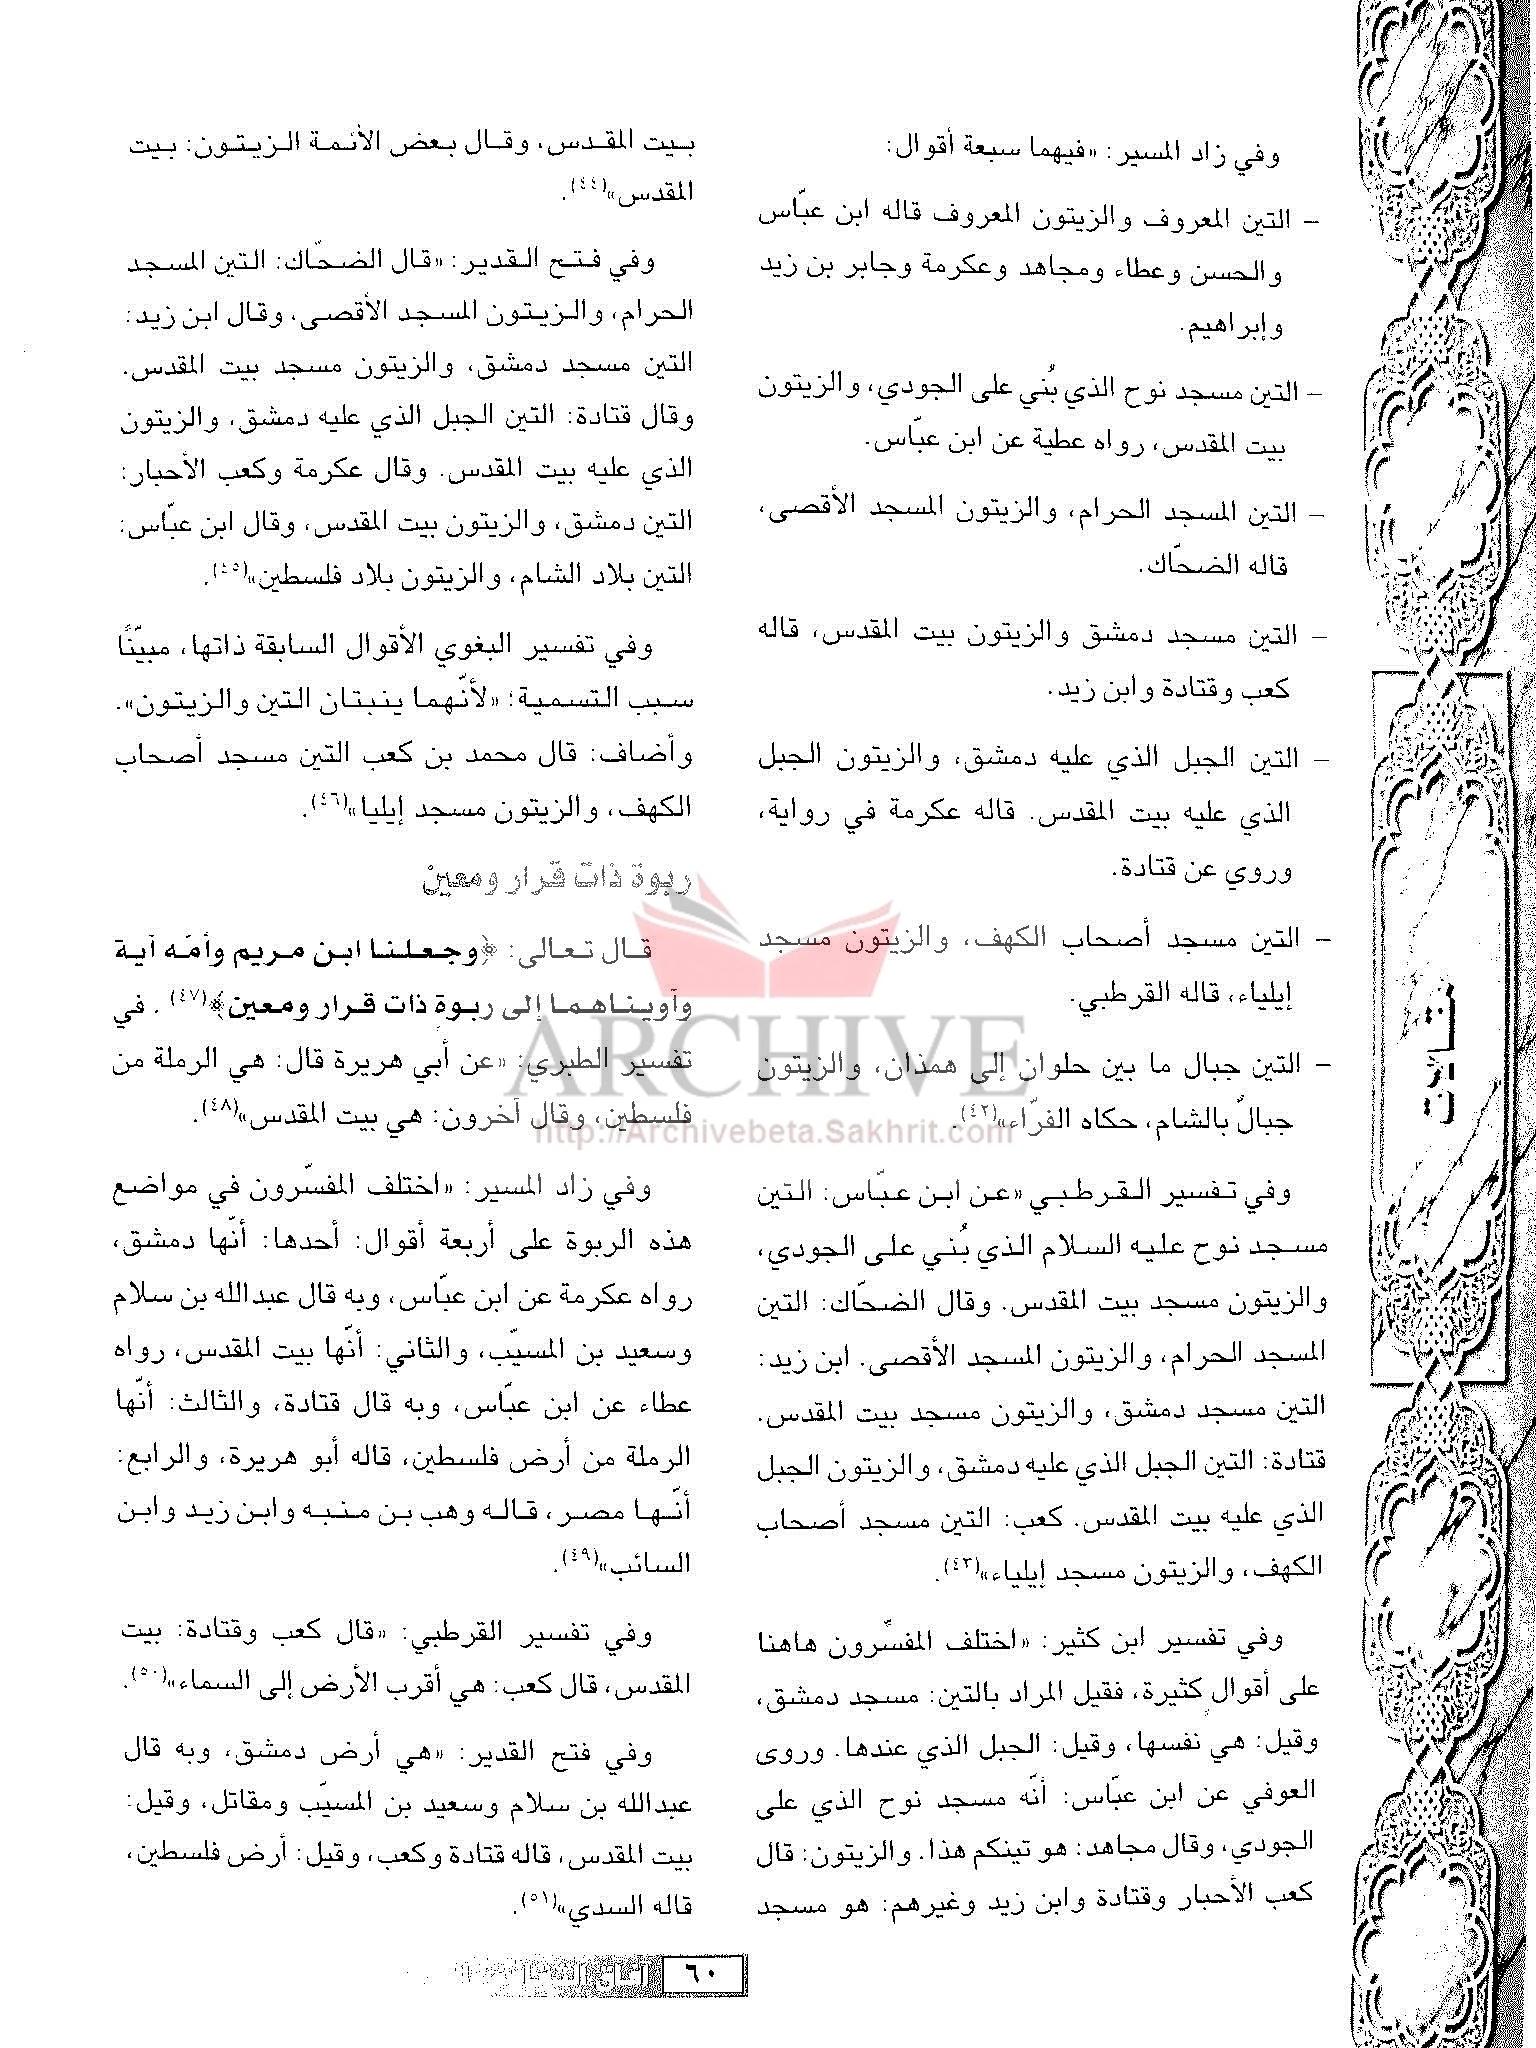 وفي زاد المسير: «فيهما سبعة أقوال:
– التين المعروف والزيتون المعروف قاله ابن عبّاس
والحسن وعطاء ومجاهد وعكرمة وجابر بن زيد
وإبراهيم.
– التين مسجد نوح الذي بُني على الجودي، والزيتون
بيت المقدس، رواه عطية عن ابن عبّاس.
– التين المسجد الحرام، والزيتون المسجد الأقصى،
قاله الضحّاك.
– التين مسجد دمشق والزيتون بيت المقدس، قاله
كعب وقتادة وابن زيد.
– التين الجبل الذي عليه دمشق، والزيتون الجبل
الذي عليه بيت المقدس. قاله عكرمة في رواية،
وروي عن قتادة.
– التين مسجد أصحاب الكهف، والزيتون مسجد
إيلياء، قاله القرطبي.
– التين جبال ما بين حلوان إلى همذان، والزيتون
جبالٌ بالشام، حكاه الفرّاء»(٤٢).
وفي تفسير القرطبي «عن ابن عبّاس: التين
مسجد نوح عليه السلام الذي بُني على الجودي،
والزيتون مسجد بيت المقدس. وقال الضحّاك: التين
المسجد الحرام، والزيتون المسجد الأقصى. ابن زيد:
التين مسجد دمشق، والزيتون مسجد بيت المقدس.
قتادة: التين الجبل الذي عليه دمشق، والزيتون الجبل
الذي عليه بيت المقدس. كعب: التين مسجد أصحاب
الكهف، والزيتون مسجد إيلياء»(٤٣).
وفي تفسير ابن كثير: «اختلف المفسّرون هاهنا
على أقوالٍ كثيرة، فقيل المراد بالتين: مسجد دمشق،
وقيل: هي نفسها، وقيل: الجبل الذي عندها. وروى
العوفي عن ابن عبّاس: أنّه مسجد نوح الذي على
الجودي، وقال مجاهد: هو تينكم هذا. والزيتون: قال
كعب الأحبار وقتادة وابن زيد وغيرهم: هو مسجد
بيت المقدس، وقال بعض الأئمة الزيتون: بيت
المقدس»(٤٤).
وفي فتح القدير: «قال الضحّاك: التين المسجد
الحرام، والزيتون المسجد الأقصى، وقال ابن زيد:
التين مسجد دمشق، والزيتون مسجد بيت المقدس.
وقال قتادة: التين الجبل الذي عليه دمشق، والزيتون
الذي عليه بيت المقدس. وقال عكرمة وكعب الأحبار:
التين دمشق، والزيتون بيت المقدس، وقال ابن عبّاس:
التين بلاد الشام، والزيتون بلاد فلسطين»(٤٥).
وفي تفسير البغوي الأقوال السابقة ذاتها، مبيّنًا
سبب التسمية؛ «لأنّهما ينبتان التين والزيتون».
وأضاف: قال محمد بن كعب التين مسجد أصحاب
الكهف، والزيتون مسجد إيليا»(٤٦).
ربوة ذات قرار ومعين
قال تعالى: ﴿وجعلنا ابن مريم وأمّه آية
وآويناهما إلى ربوة ذات قرار ومعين﴾(٤٧). في
تفسير الطبري: «عن أبي هريرة قال: هي الرملة من
فلسطين، وقال آخرون: هي بيت المقدس»(٤٨).
وفي زاد المسير: «اختلف المفسّرون في مواضع
هذه الربوة على أربعة أقوال: أحدها: أنّها دمشق،
رواه عكرمة عن ابن عبّاس، وبه قال عبدالله بن سلام
وسعيد بن المسيّب، والثاني: أنّها بيت المقدس، رواه
عطاء عن ابن عبّاس، وبه قال قتادة، والثالث: أنّها
الرملة من أرض فلسطين، قاله أبو هريرة، والرابع:
أنّها مصر، قاله وهب بن منبه وابن زيد وابن
السائب»(٤٩).
وفي تفسير القرطبي: «قال كعب وقتادة: بيت
المقدس، قال كعب: هي أقرب الأرض إلى السماء»(٥٠).
وفي فتح القدير: «هي أرض دمشق، وبه قال
عبدالله بن سلام وسعيد بن المسيّب ومقاتل، وقيل:
بيت المقدس، قاله قتادة وكعب، وقيل: أرض فلسطين،
قاله السدي»(٥١).
مقالات
ARCHIVE
http://Archivebeta.Sakhrit.com
٦٠